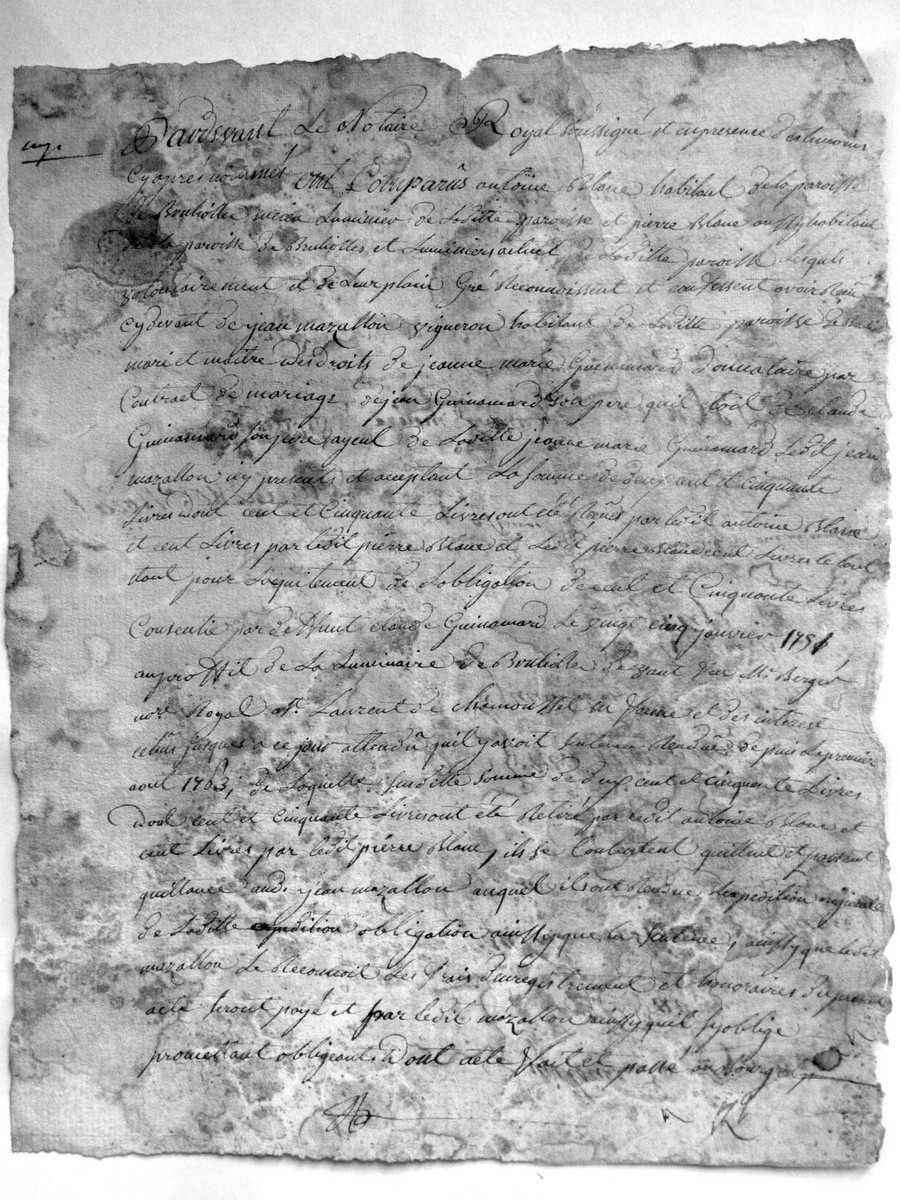 Pardevant Le Notaire Royal soussigné et en presence des temoins
Cyaprés nommés ont Comparûs antoine Blanc habitant de la paroisse
de Brulliolles Luminier de Laditte paroisse et pierre Blanc aussy habitant
de la paroisse de Brulliolles et Luminiers actuel de Laditte paroisse Lesquels
volontairement et de Leur plain Gré Reconnoissent et confessent avoir
Cydevant de jean mazallon vigneron habitant de Laditte paroisse
mari et maitre des droits de jeanne marie Guinamard donnataire par
Contract de mariage de jean Guinamard son pere quil toit de claude
Guinamard son pere ayeul de Laditte jeanne marie Guinamard Ledit jean
mazallon icy present et acceptant La somme de deux cent et cinquante
Livres dont cent et Cinquante Livres ont été par ledit antoine Blanc
et cent Livres par ledit pierre Blanc et Ledit pierre Blanc cent Livres le tout
tout pour Lacquitement de Lobligation de cent et Cinquante Livres
Consentie par deffunt claude Guinamard Le vingt cinq janvier 1751
au proffit de La Luminaire de Brulliolles devant Me Berger
nore Royal a St Laurent de chamousset en forme et des interest
echûs jusques a ce jour attendû quil y avoit sentence Rendûe depuis Le premier
aout 1763; de Laquelle susditte somme de deux cent et cinquante Livres
dont cent et Cinquante Livres ont été Retiré par ledit antoine Blanc et
cent Livres par ledit pierre Blanc, ils se Contentent quittent et passent
quittance audt jean mazallon auquel ils ont Rendue Lexpedition
de Laditte expedition obligation ainsy que la sentence; ainsy que Ledit
mazallon Le Reconnoit Les frais denregistrement et honoraires du present
acte seront payé et par ledit mazallon ainsy quil sy oblige
promettant obligeant. Dont acte fait et passé au Bourg